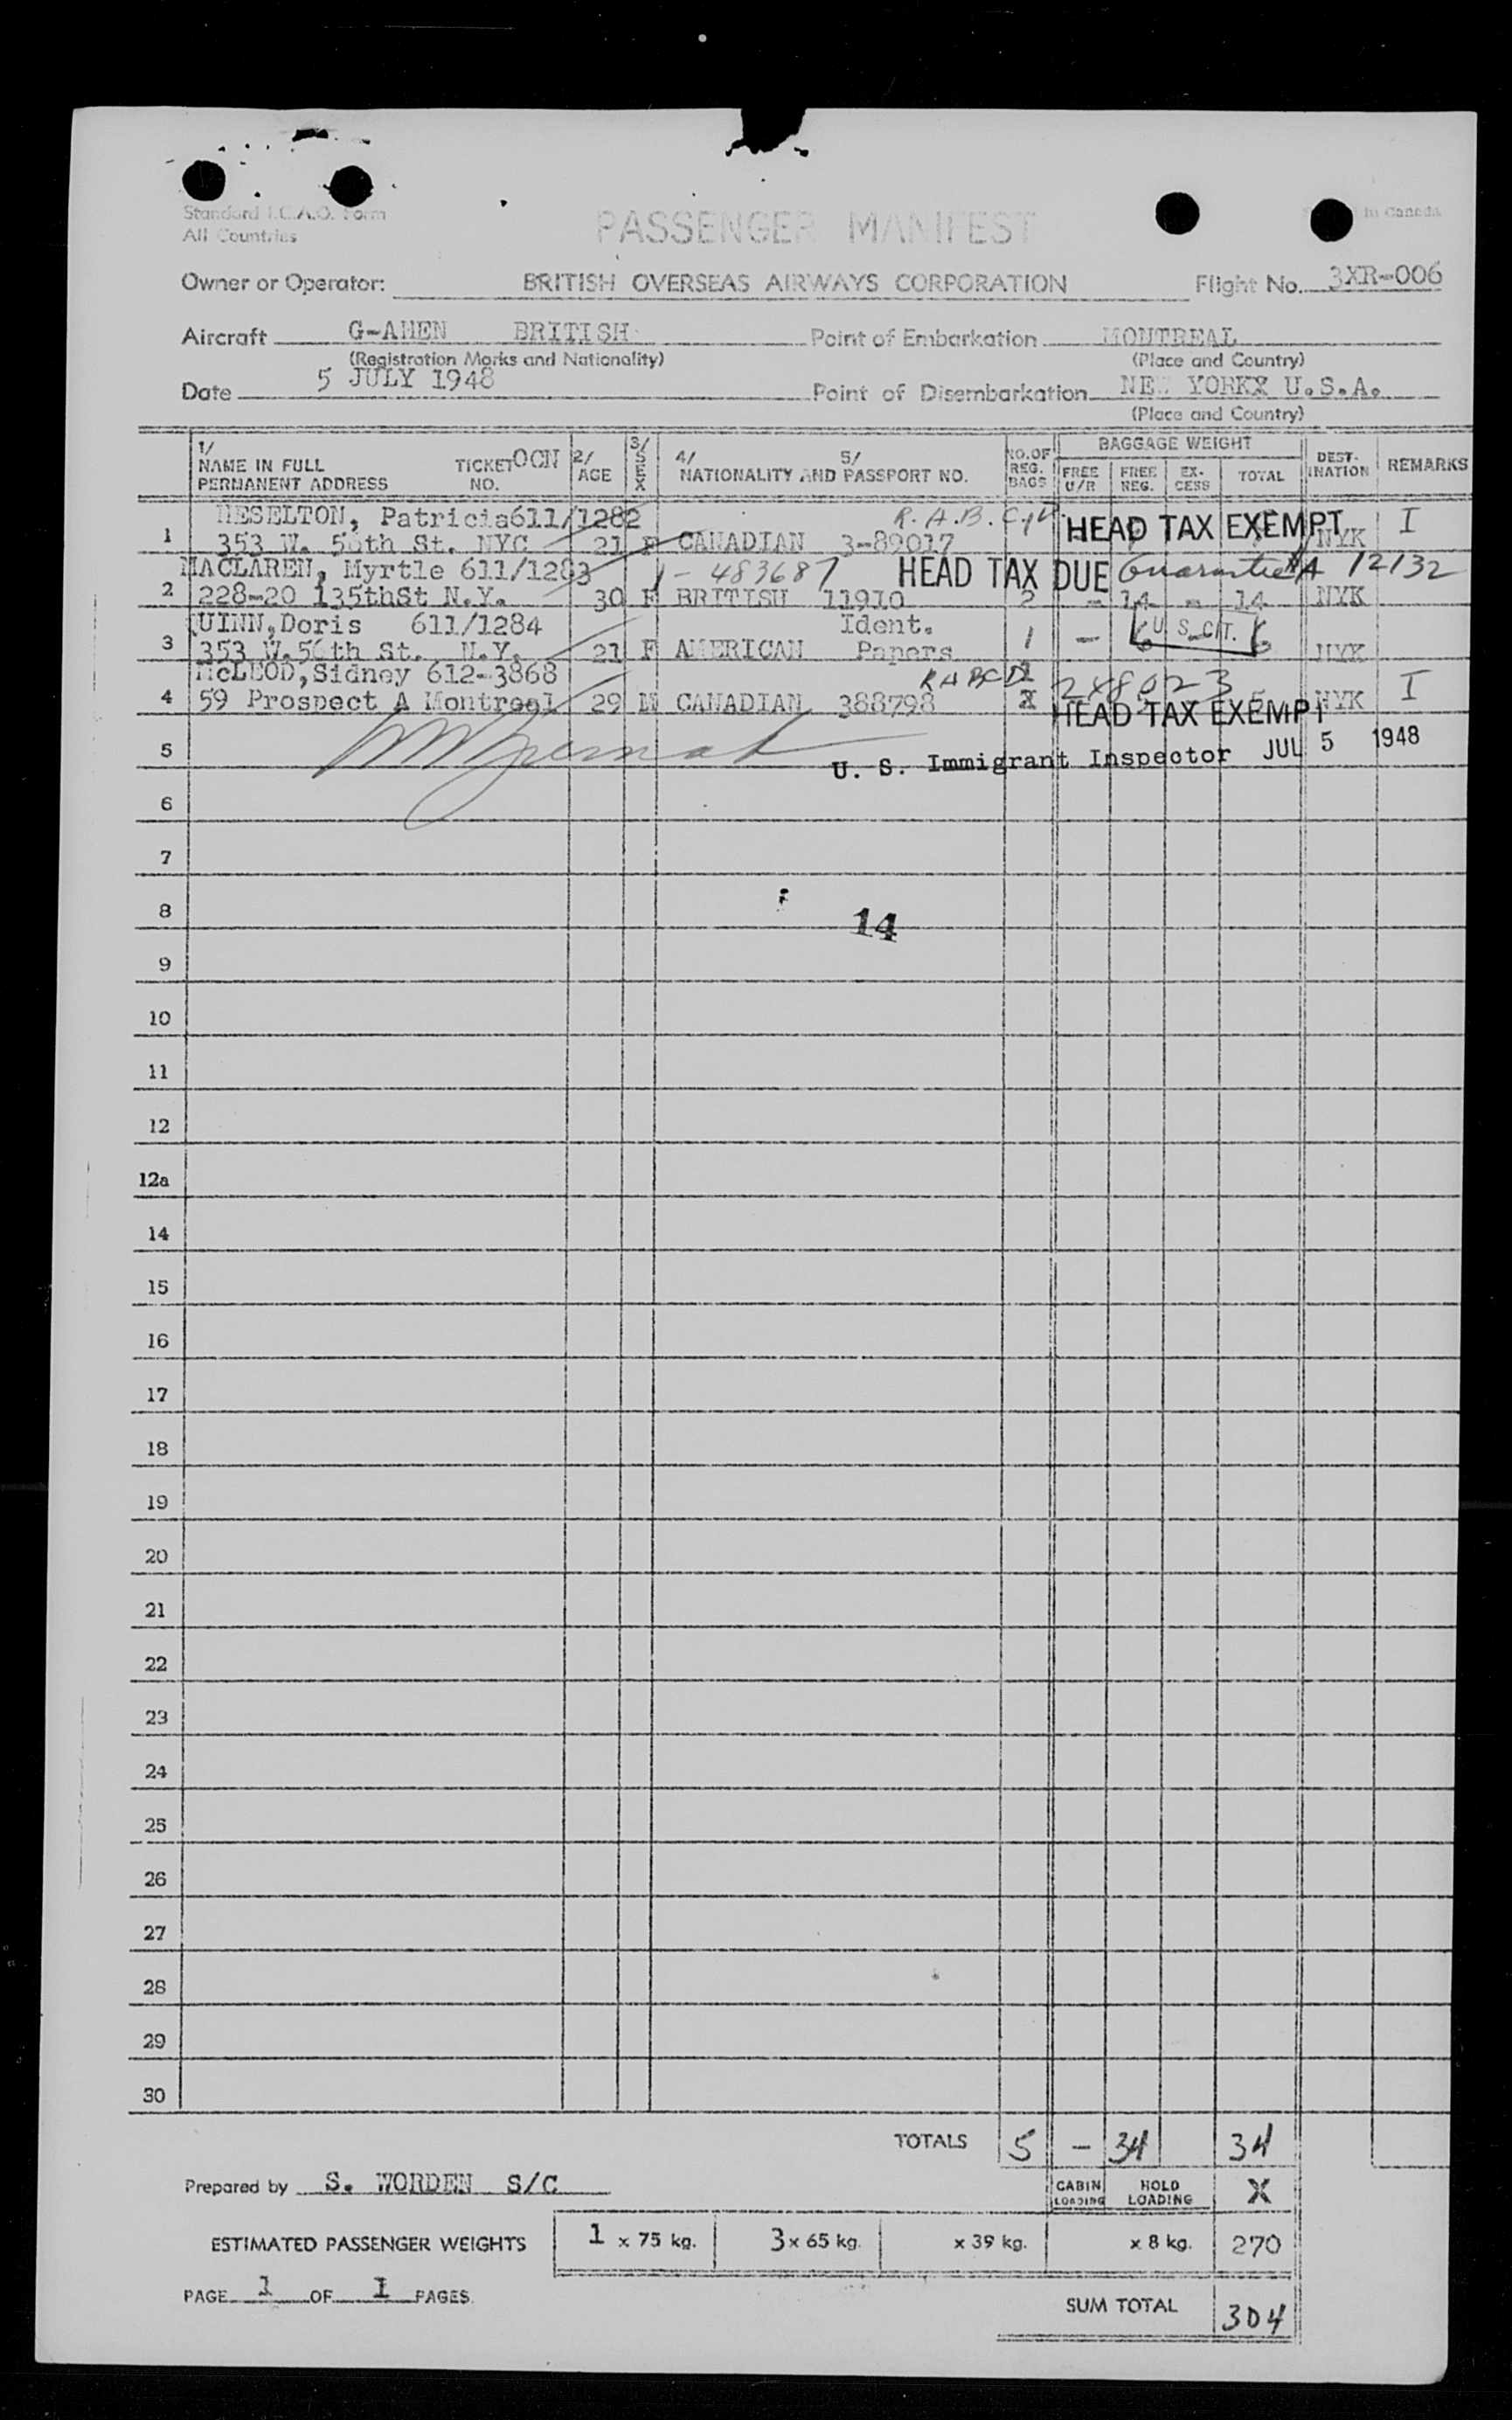 Standard I.C.A.O. Form
All Countries
in Canada
PASSENGER MANIFEST
Owner or Operator: BRITISH OVERSEAS AIRWAYS CORPORATION Flight No. 3XR-006
Aircraft G-AHEN BRITISH Point of Embarkation MONTREAL
(Registration Marks and Nationality) (Place and Country)
Date 5 JULY 1948 Point of Disembarkation NEW YORKX U.S.A.
(Place and Country)
1/ NAME IN FULL PERMANENT ADDRESS TICKET NO. OCN 2/ AGE 3/ SEX 4/ NATIONALITY AND 5/ PASSPORT NO. NO. OF REG. BAGS BAGGAGE WEIGHT FREE U/R FREE REG. EX-CESS TOTAL DEST-INATION REMARKS
HESELTON, Patricia 611/1282 R.A.B.C. HEAD TAX EXEMPT I
1 353 W. 56th St. NYC 21 F CANADIAN 3-89017 1 NYK
MACLAREN, Myrtle 611/1283 1-483687 HEAD TAX DUE Guarantee A 12132
2 228-20 135thSt N.Y. 30 F BRITISH 11910 2 - 14 - 14 NYK
QUINN, Doris 611/1284 Ident. U S CIT.
3 353 W. 56th St. N.Y. 21 F AMERICAN Papers 1 - 6 6 NYK
McLEOD, Sidney 612-3868 248023 I
4 59 Prospect A Montreal 29 M CANADIAN 388798 NYK
HEAD TAX EXEMPT
5 U. S. Immigrant Inspector JUL 5 1948
6
7
8 14
9
10
11
12
12a
14
15
16
17
18
19
20
21
22
23
24
25
26
27
28
29
30
TOTALS 5 - 34 34
Prepared by S. WORDEN S/C CABIN LOADING HOLD LOADING X
ESTIMATED PASSENGER WEIGHTS 1 x 75 kg. 3 x 65 kg. x 39 kg. x 8 kg. 270
PAGE 1 OF 1 PAGES.
SUM TOTAL 304